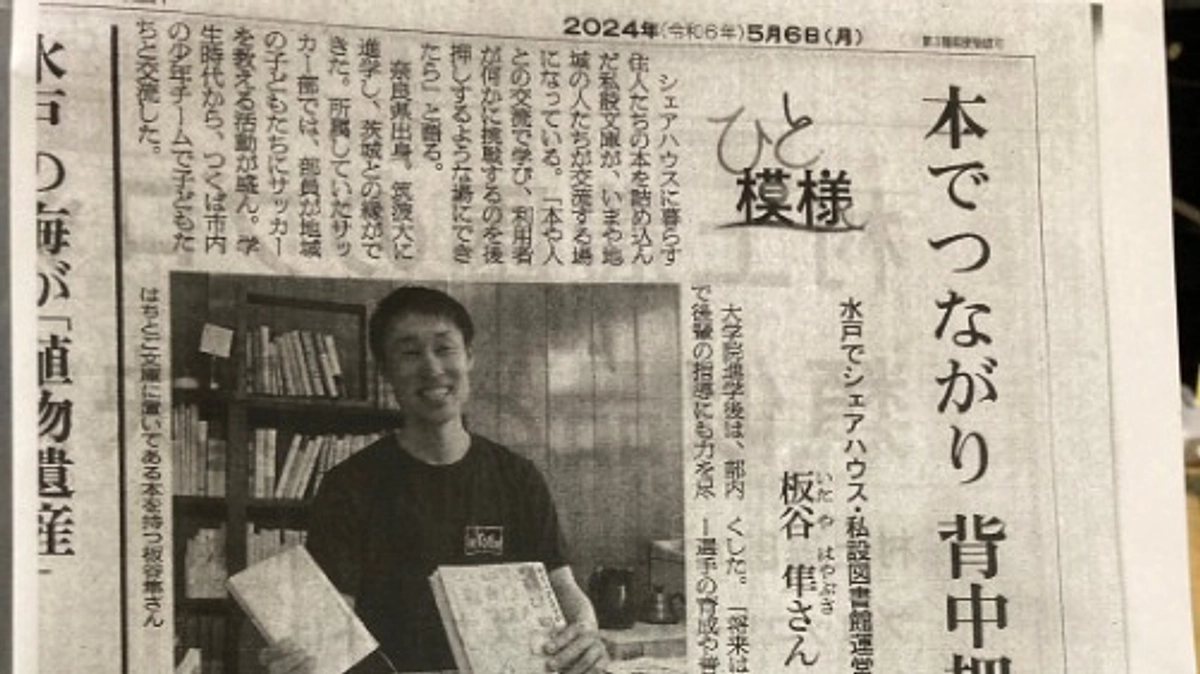 2024年(令和6年)5月6日(月)
本でつながり 背中押
水戸でシェアハウス・私設図書館運営
いたや はやぶさ
板谷 隼さん
ひと
模様
シェアハウスに暮らす
住人たちの本を詰め込ん
だ私設文庫が、いまや地
域の人たちが交流する場
になっている。「本や人
との交流で学び、利用者
が何かに挑戦するのを後
押しするような場にでき
たら」と語る。
奈良県出身。筑波大に
進学し、茨城との縁がで
きた。所属していたサッ
カー部では、部員が地域
の子どもたちにサッカー
を教える活動が盛ん。学
生時代から、つくば市内
の少年チームで子どもた
ちと交流した。
大学院進学後は、部内
で後輩の指導にも力を尽
くした。「将来は
ー選手の育成や
はちとご文庫に置いてある本を持つ板谷隼さん
水戸の海が「植物遺産